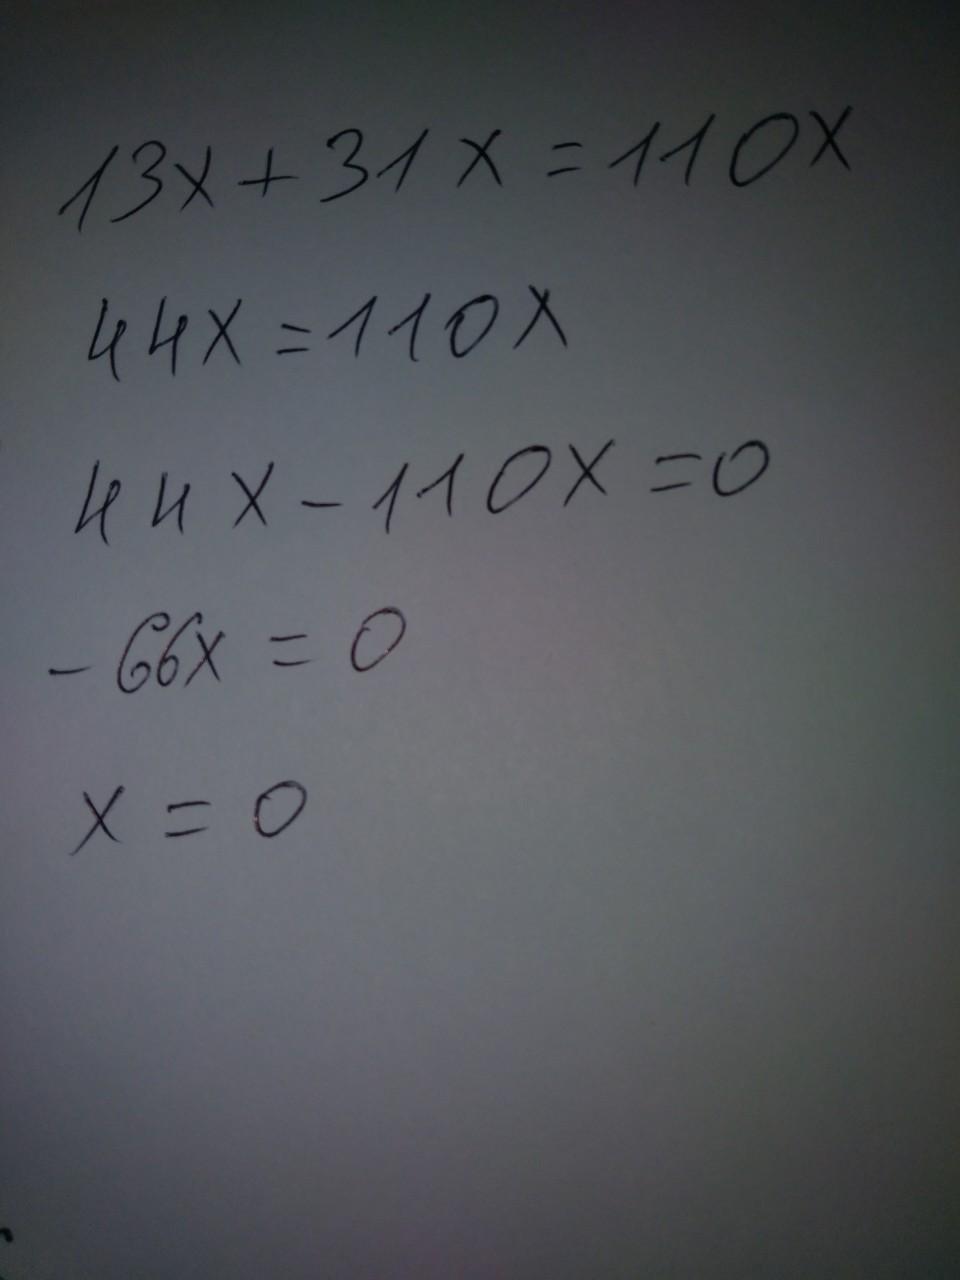 13x+31x=110x
44x=110x
44x-110x=0
-66x=0
x=0